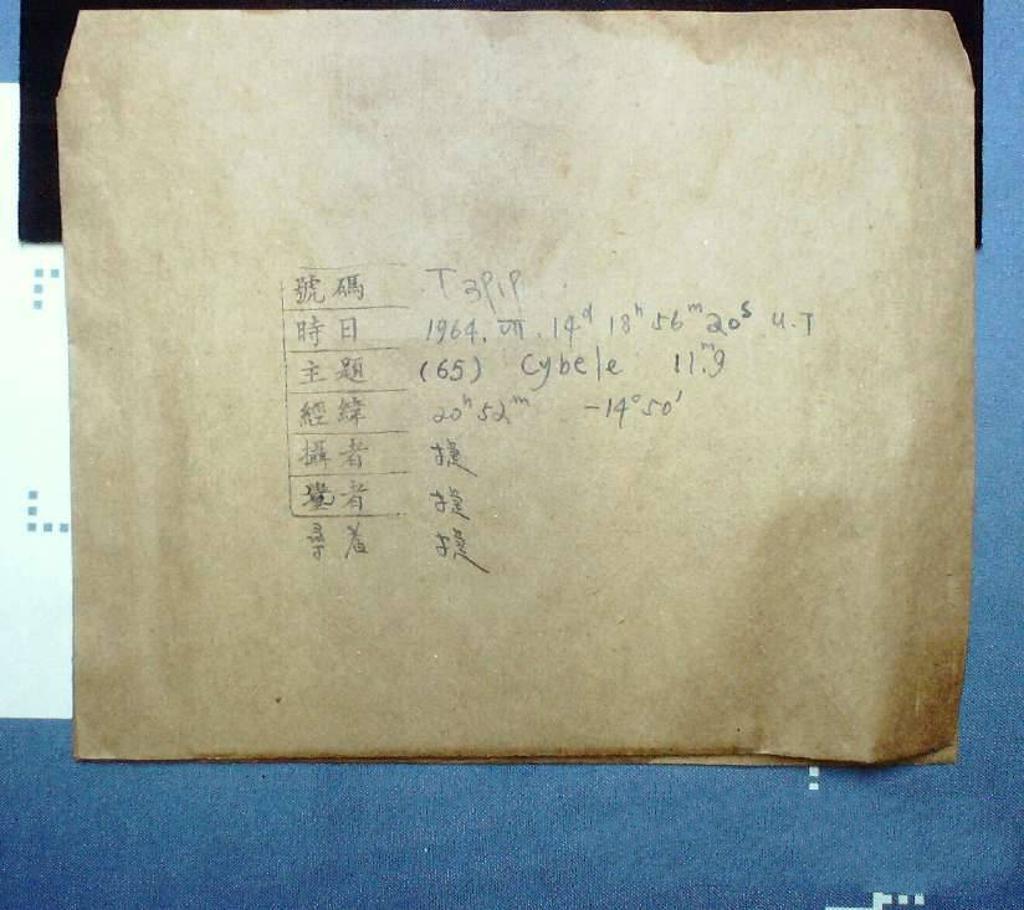 號碼 T3919
時日 1964. VII. 14ᵈ 18ʰ 56ᵐ 20ˢ U.T
主題 (65) Cybele 11ᵐ.9
經緯 20ʰ 52ᵐ -14°50'
攝者 捷
覽者 捷
尋着 捷